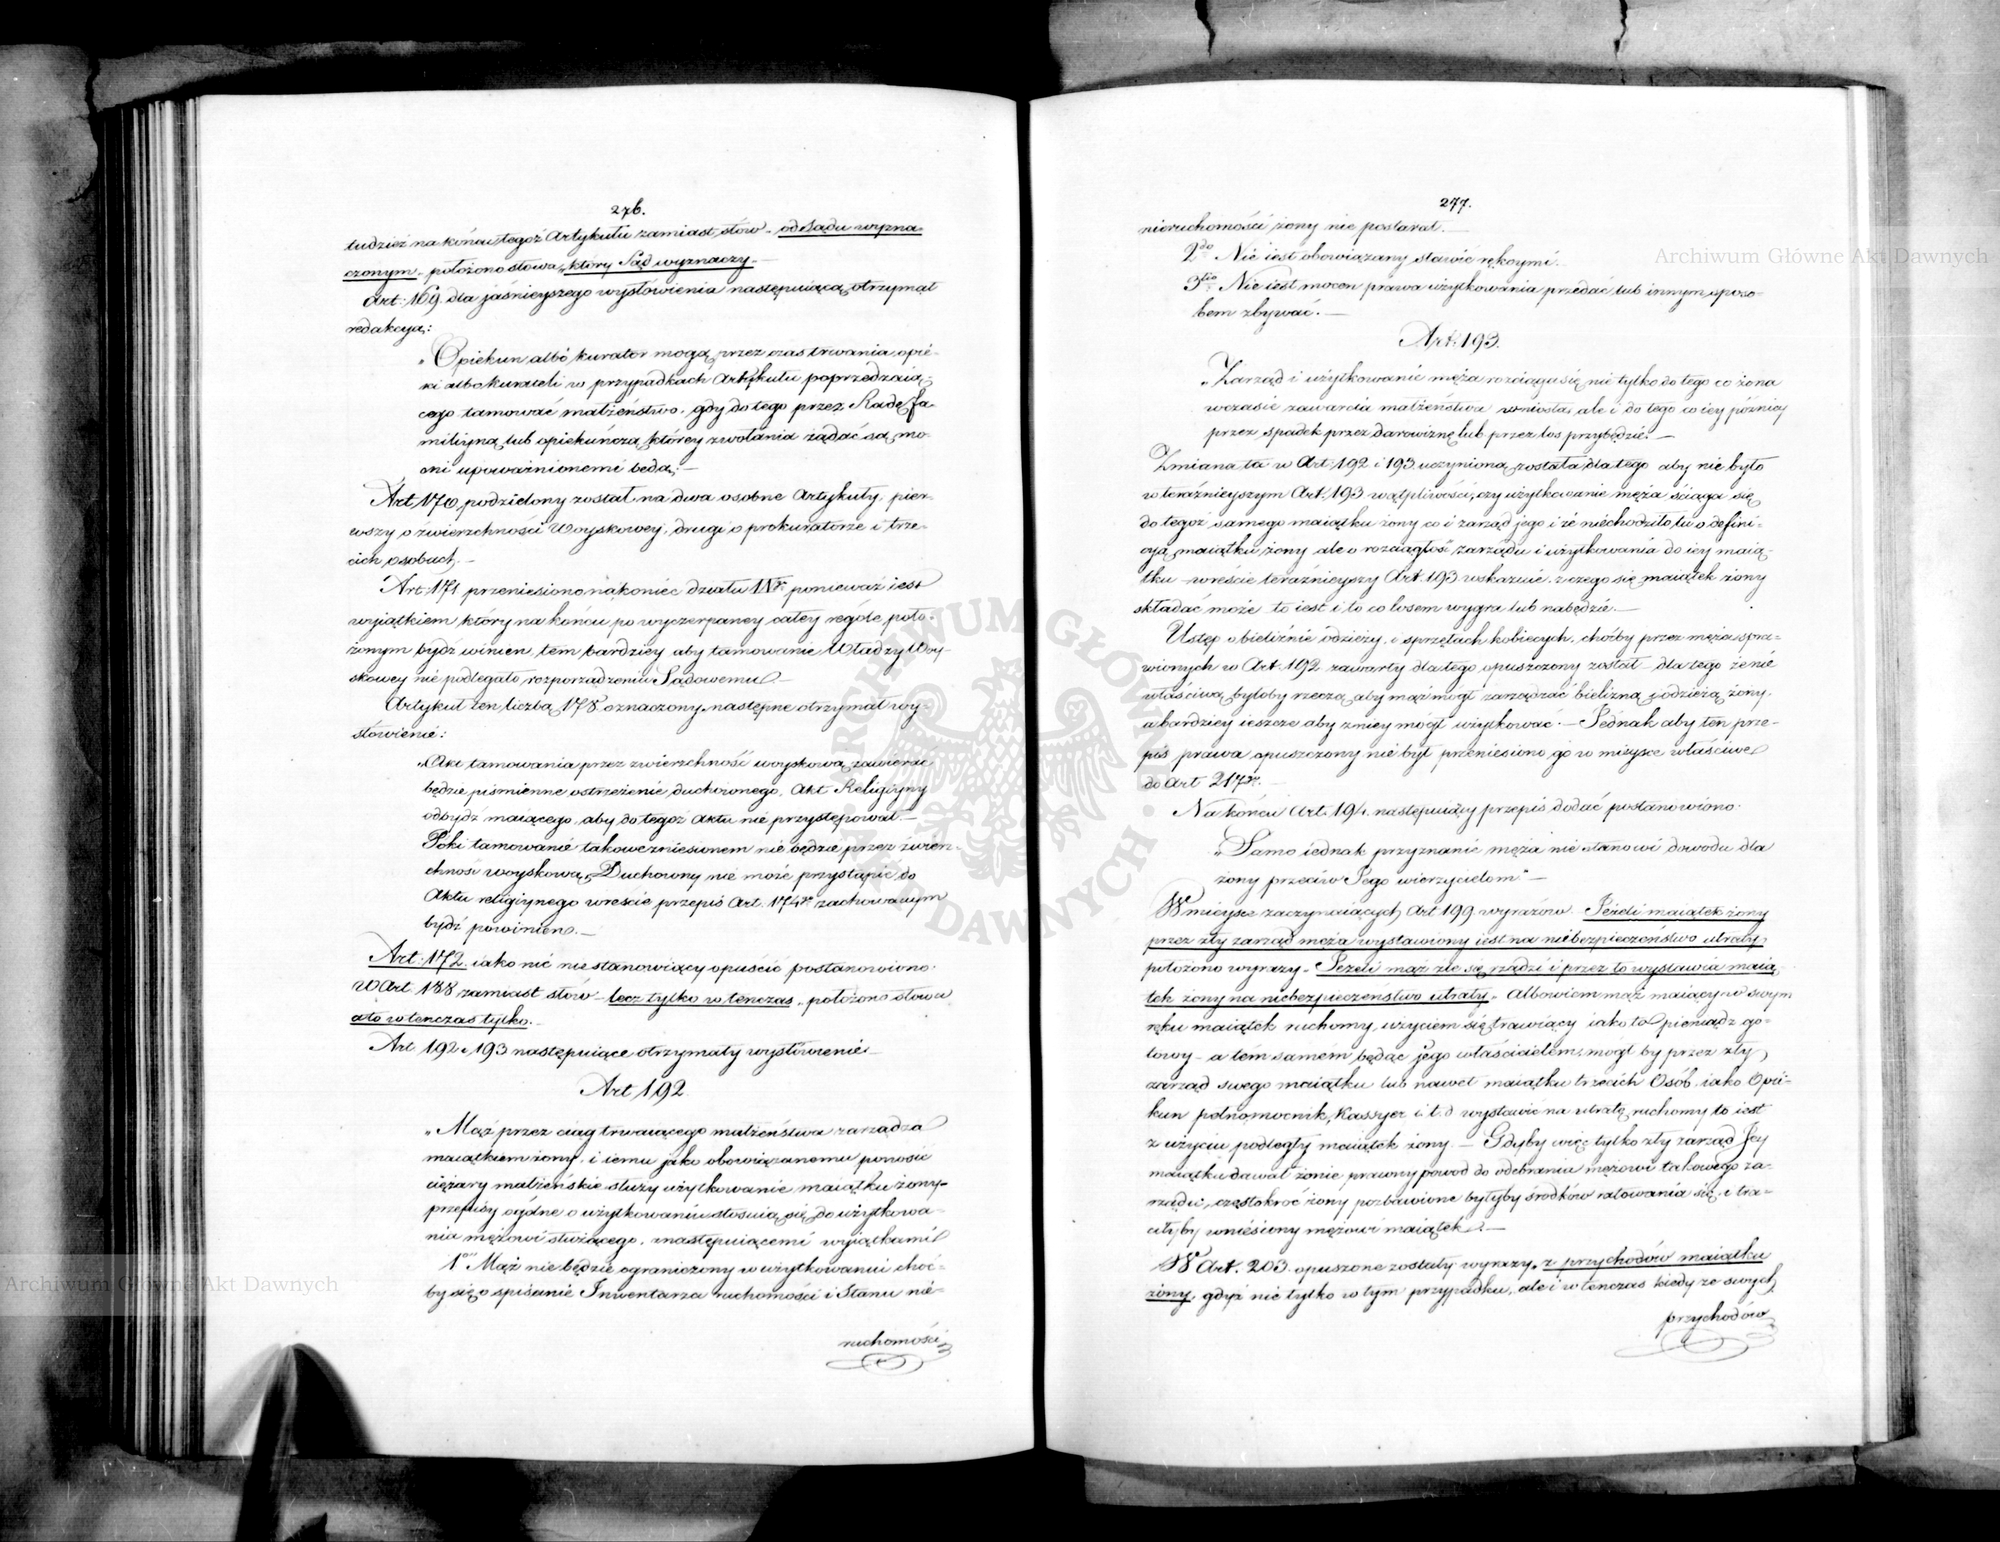 276.
tudzież na końcu tegoż Artykułu zamiast słów „od Sądu wyzna-
czonym„ położono słowa „który Sąd wyznaczy„ —
Art: 169 dla jaśnieyszego wysłowienia następuiącą otrzymał
redakcyą:
„Opiekun albo kurator mogą przez czas trwania opie-
ki albo kurateli w przypadkach Artykułu poprzedzaią-
cego tamować małżeństwo, gdy do tego przez Radę fa-
miliyną lub opiekuńczą, którey zwołania żądać są mo-
cni upoważnionemi będą. —
Art 170 podzielony został na dwa osobne Artykuły, pier-
wszy o zwierzchności Woyskowey, drugi o prokuratorze i trze-
cich osobach. —
Art 171 przeniesiono na koniec działu IVº ponieważ iest
wyiątkiem który na końcu po wyczerpaney całey rególe poło-
żonym bydź winien, tem bardziey aby tamowanie Władzy Woy-
skowey nie podlegało rozporządzeniu Sądowemu. —
Artykuł ten liczbą 178 oznaczony następne otrzymał wy-
słowienie:
„Akt tamowania przez zwierzchność woyskową zawierać
będzie piśmienne ostrzeżenie duchownego, Akt Religiyny
odbydź maiącego, aby do tegoż Aktu nie przystępował. —
Poki tamowanie takowe zniesionem nie będzie przez zwierz-
chność woyskową, Duchowny nie może przystąpić do
Aktu religiynego wreście przepis Art. 174º zachowanym
bydź powinien. —
Art: 172. iako nic nie stanowiący opuścić postanowiono.
W Art 188 zamiast słów „lecz tylko w tenczas„ położono słowa
a to w tenczas tylko. —
Art 192 i 193 następuiące otrzymały wysłowienie —
Art 192.
„Mąż przez ciąg trwaiącego małżeństwa zarządza
maiątkiem żony, i iemu jako obowiązanemu ponosić
ciężary małżeńskie służy użytkowanie maiątku żony —
przepisy ogólne o użytkowaniu stosuią się do użytkowa-
nia mężowi służącego, z następuiącemi wyiątkami
1º Mąż nie będzie ograniczony w użytkowaniu choć-
by się o spisanie Inwentarza ruchomości i Stanu nie-
ruchomości
277.
nieruchomości żony nie postarał. —
2do Nie iest obowiązany stawić rękoymi. —
3tio Nie iest mocen prawa użytkowania przedać lub innym sposo-
bem zbywać. —
Art. 193.
„Zarząd i użytkowanie męża rozciąga się nie tylko do tego co żona
w czasie zawarcia małżeństwa wniosła, ale i do tego co iey później
przez spadek przez darowiznę lub przez los przybędzie. —
Zmiana ta w Art. 192 i 193 uczynioną została dla tego aby nie było
w teraźnieyszym Art. 193 wątpliwości, czy użytkowanie męża ściąga się
do tegoż samego maiątku żony co i zarząd jego i że nie chodziło tu o defini-
cyą maiątku żony ale o rozciągłość zarządu i użytkowania do iey maią-
tku – wreście teraźnieyszy Art. 193 wskazuie z czego się maiątek żony
składać może to iest i to co losem wygra lub nabędzie. —
Ustęp o bieliźnie odzieży, i sprzętach kobiecych, choćby przez męża spra-
wionych w Art. 192 zawarty dla tego opuszczony został – dla tego że nie
właściwą byłoby rzeczą, aby mąż mógł zarządzać bielizną i odzieżą żony,
a bardziey ieszcze aby z niey mógł użytkować. — Jednak aby ten prze-
pis prawa opuszczony nie był przeniesiono go w mieysce właściwe
do Art 217º. —
Na końcu Art. 194. następuiący przepis dodać postanowiono:
„Samo iednak przyznanie męża nie stanowi dowodu dla
żony przeciw Jego wierzycielom” —
W mieysce zaczynaiących Art 199 wyrazów – Jeżeli maiątek żony
przez zły zarząd męża wystawiony iest na niebezpieczeństwo utraty,
położono wyrazy – Jeżeli mąż źle się rządzi i przez to wystawia maią-
tek żony na niebezpieczeństwo utraty„ Albowiem mąż maiący w swym
ręku maiątek ruchomy, użyciem się trawiący iako to pieniądz go-
towy – a tém samém będąc jego właścicielem, mógł by przez zły
zarząd swego maiątku lub nawet maiątku trzecich Osób, iako Opie-
kun pełnomocnik, Kassyer i t. d wystawić na utratę ruchomy to iest
z użyciu podległy maiątek żony. — Gdyby więc tylko zły zarząd Jey
maiątku dawał żonie prawny powód do odebrania mężowi takowego za-
rządu, częstokroć żony pozbawione byłyby środków ratowania się, i tra-
ciłyby wniesiony mężowi maiątek. —
W Art. 203. opuszone zostały wyrazy „z przychodów maiątku
żony, gdyż nie tylko w tym przypadku, ale i w tenczas kiedy ze swych
przychodów
Archiwum Główne Akt Dawnych
Archiwum Główne Akt Dawnych
ARCHIWUM GŁÓWNE AKT DAWNYCH